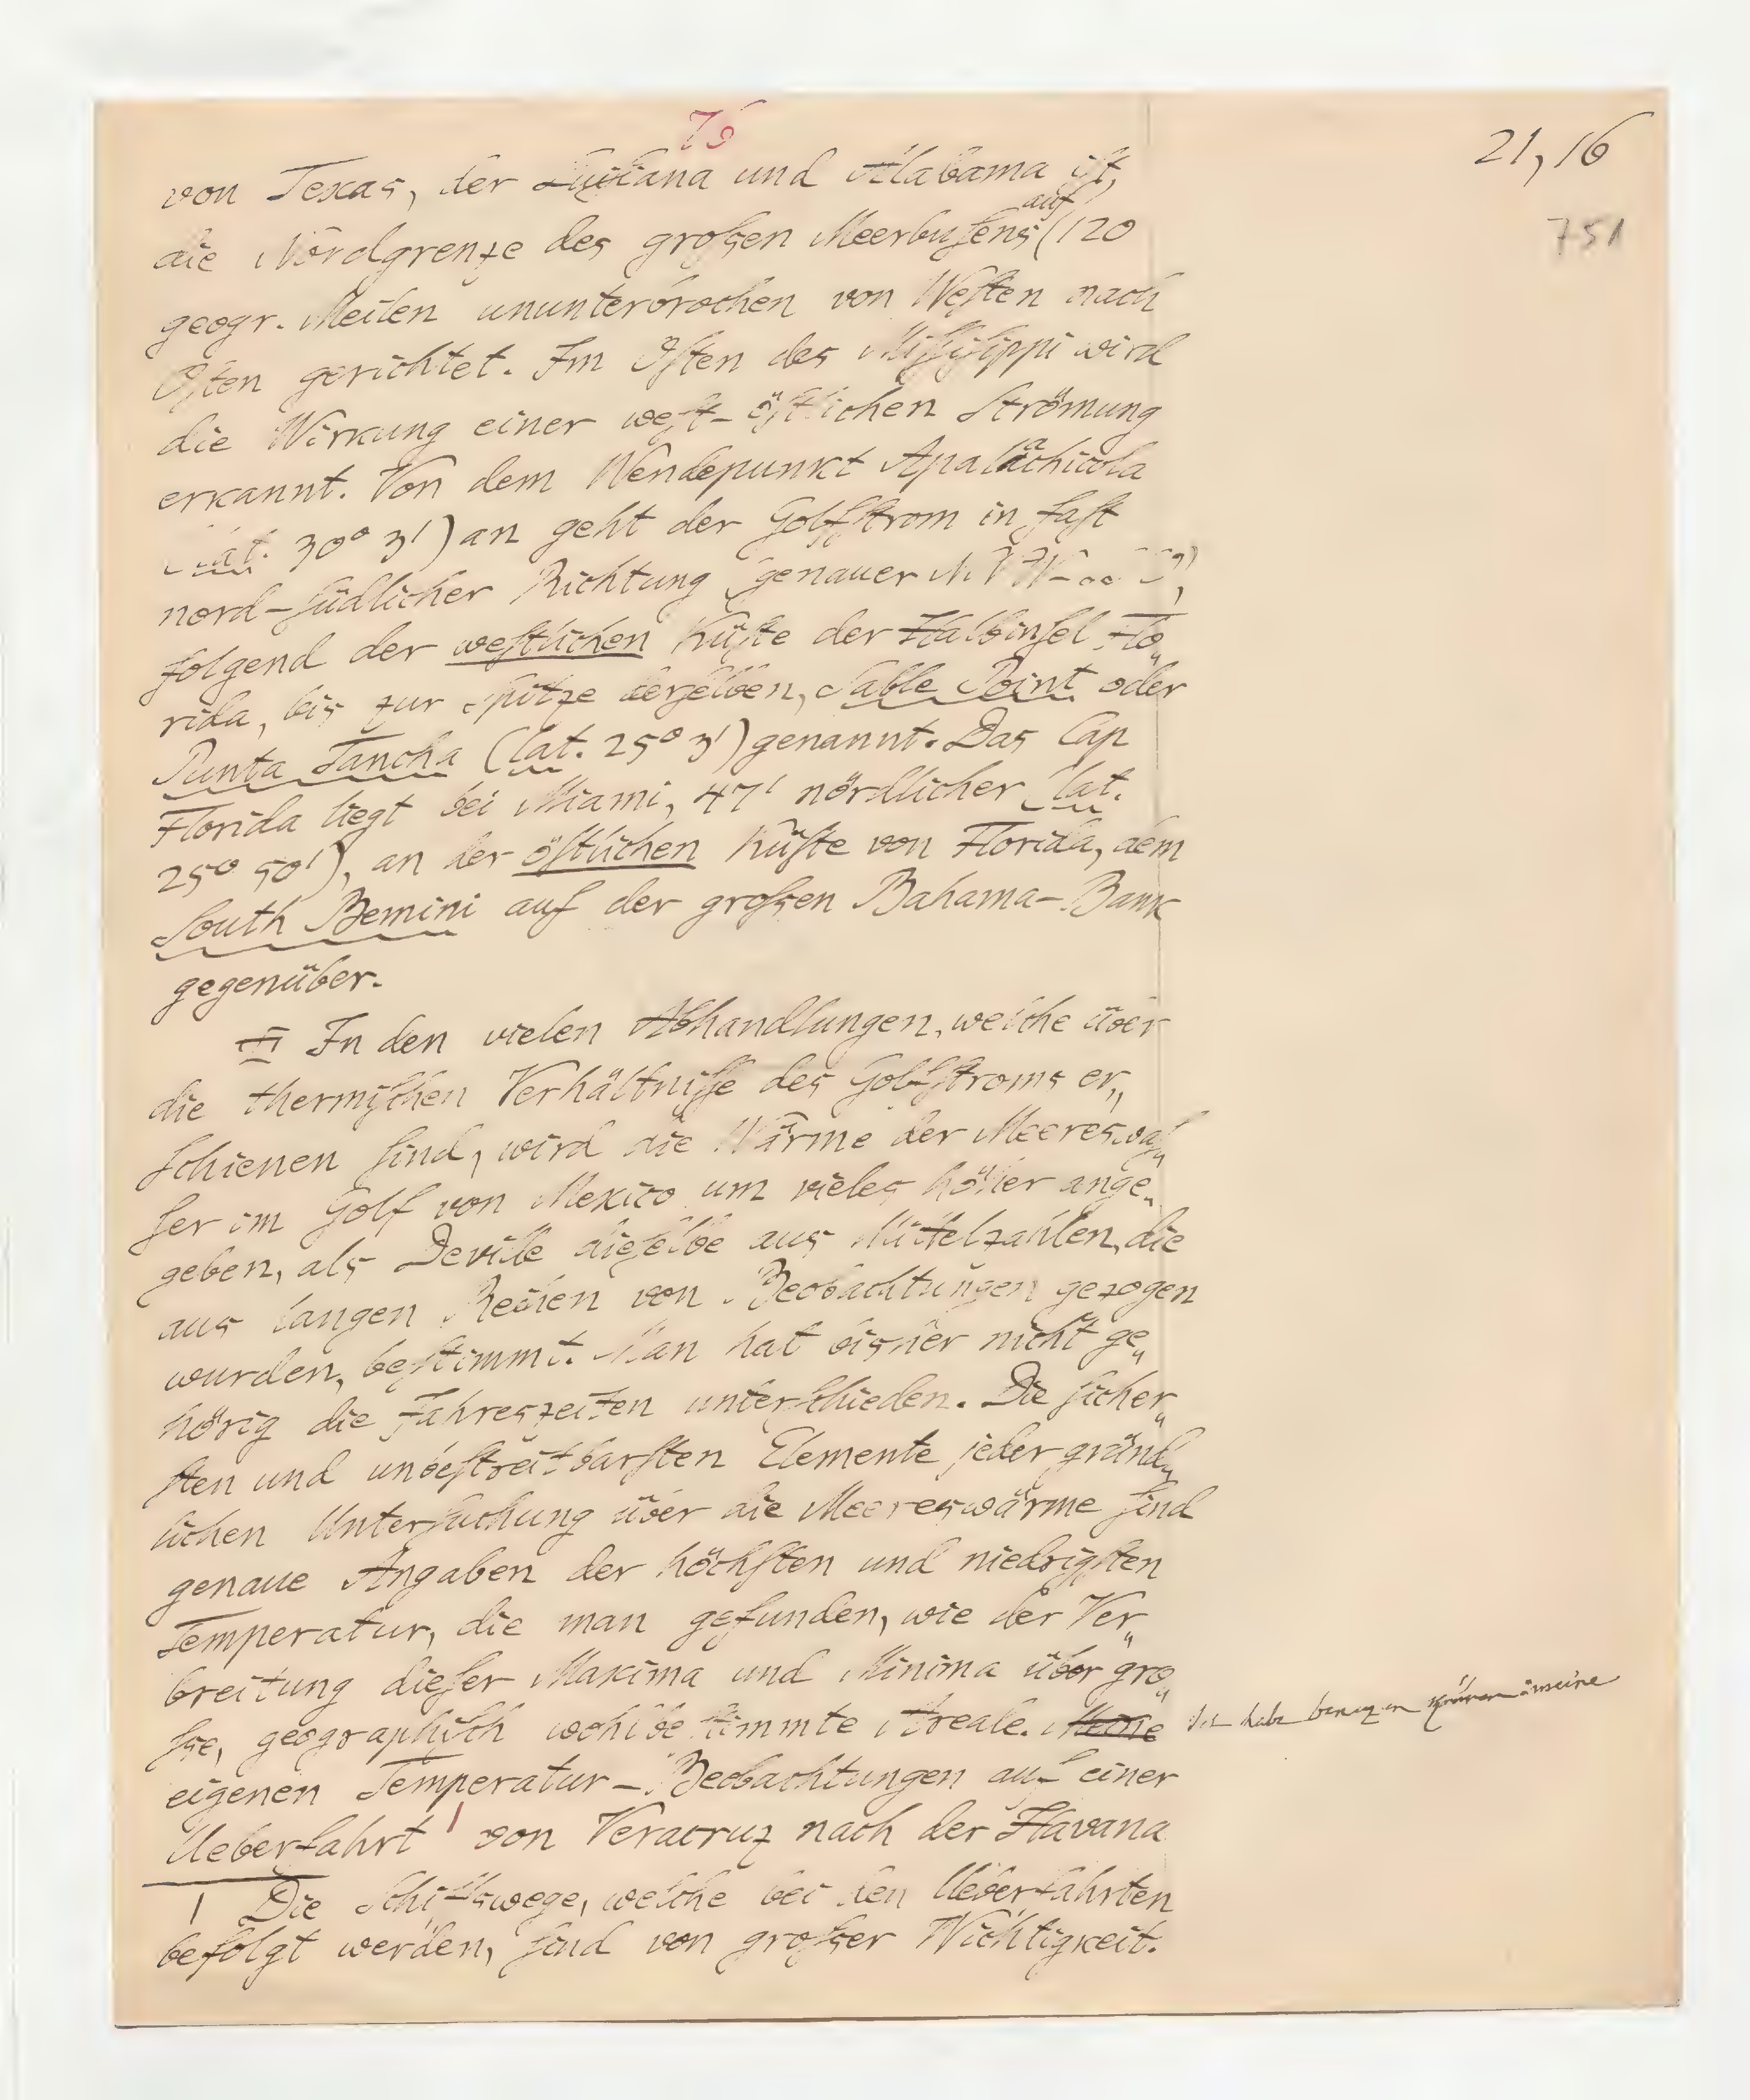 76
21, 16
751
von Texas, der Luisiana und Alabama ist,
auf
die Nordgrenze des großen Meerbusens (120
geogr. Meilen ununterbrochen von Westen nach
Osten gerichtet. Im Osten des Missisippi wird
die Wirkung einer west-östlichen Strömung
erkannt. Von dem Wendepunkt Apalachicola
lat. 30° 3') an geht der Golfstrom in fast
nord-südlicher Richtung (genauer
folgend der westlichen Küste der Halbinsel Flo„
rida, bis zur Spitze derselben, Sable Point oder
Punta Tancha (lat. 25° 3') genannt. Das Cap
Florida liegt bei Miami, 47' nördlicher (lat.
25° 50'), an der östlichen Küste von Florida, dem
South Bemini auf der großen Bahama-Bank
gegenüber.
In den vielen Abhandlungen, welche über
die thermischen Verhältnisse des Golfstroms er„
schienen sind, wird die Wärme der Meereswas„
ser im Golf von Mexico um vieles höher ange„
geben, als Deville dieselbe aus Mittelzahlen, die
aus langen Reihen von Beobachtungen gezogen
wurden, bestimmt. Man hat bisher nicht ge„
hörig die Jahreszeiten unterschieden. Die sicher„
sten und unbestreitbarsten Elemente jeder gründ„
lichen Untersuchung über die Meereswärme sind
genaue Angaben der höchsten und niedrigsten
Temperatur, die man gefunden, wie der Ver„
breitung dieser Maxima und Minima über gro„
ße, geographisch wohlbestimmte Areale. Meine Ich habe meine
eigenen Temperatur-Beobachtungen auf einer
Ueberfahrt 1 von Veracruz nach der Havana
1 Die Schiffswege, welche bei den Ueberfahrten
befolgt werden, sind von großer Wichtigkeit.